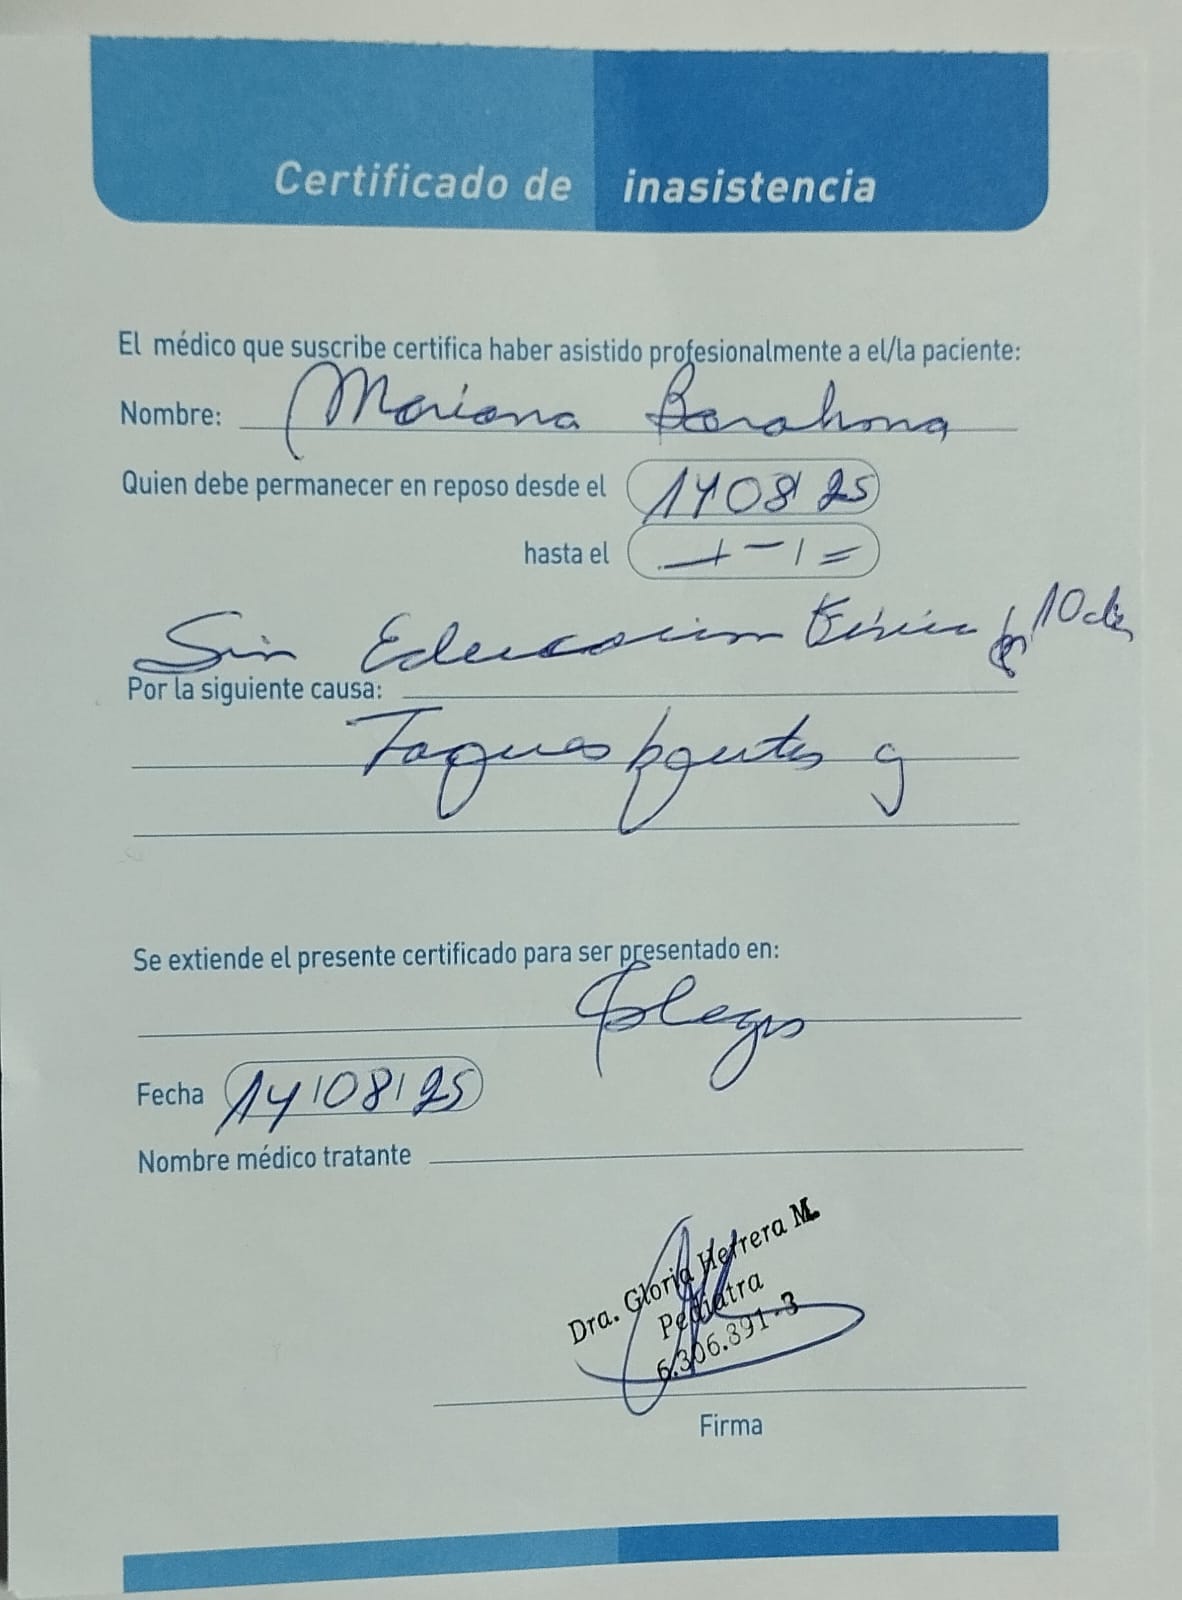 Certificado de inasistencia
El médico que suscribe certifica haber asistido profesionalmente a el/la paciente:
Nombre: Mariana Barahona
Quien debe permanecer en reposo desde el 14 08 25
hasta el
Sin Educacion Física 10
Por la siguiente causa:
Se extiende el presente certificado para ser presentado en:
Colegio
Fecha 14/08/25
Nombre médico tratante
Dra. Gloria Herrera M.
Pediatra
6.306.391-3
Firma